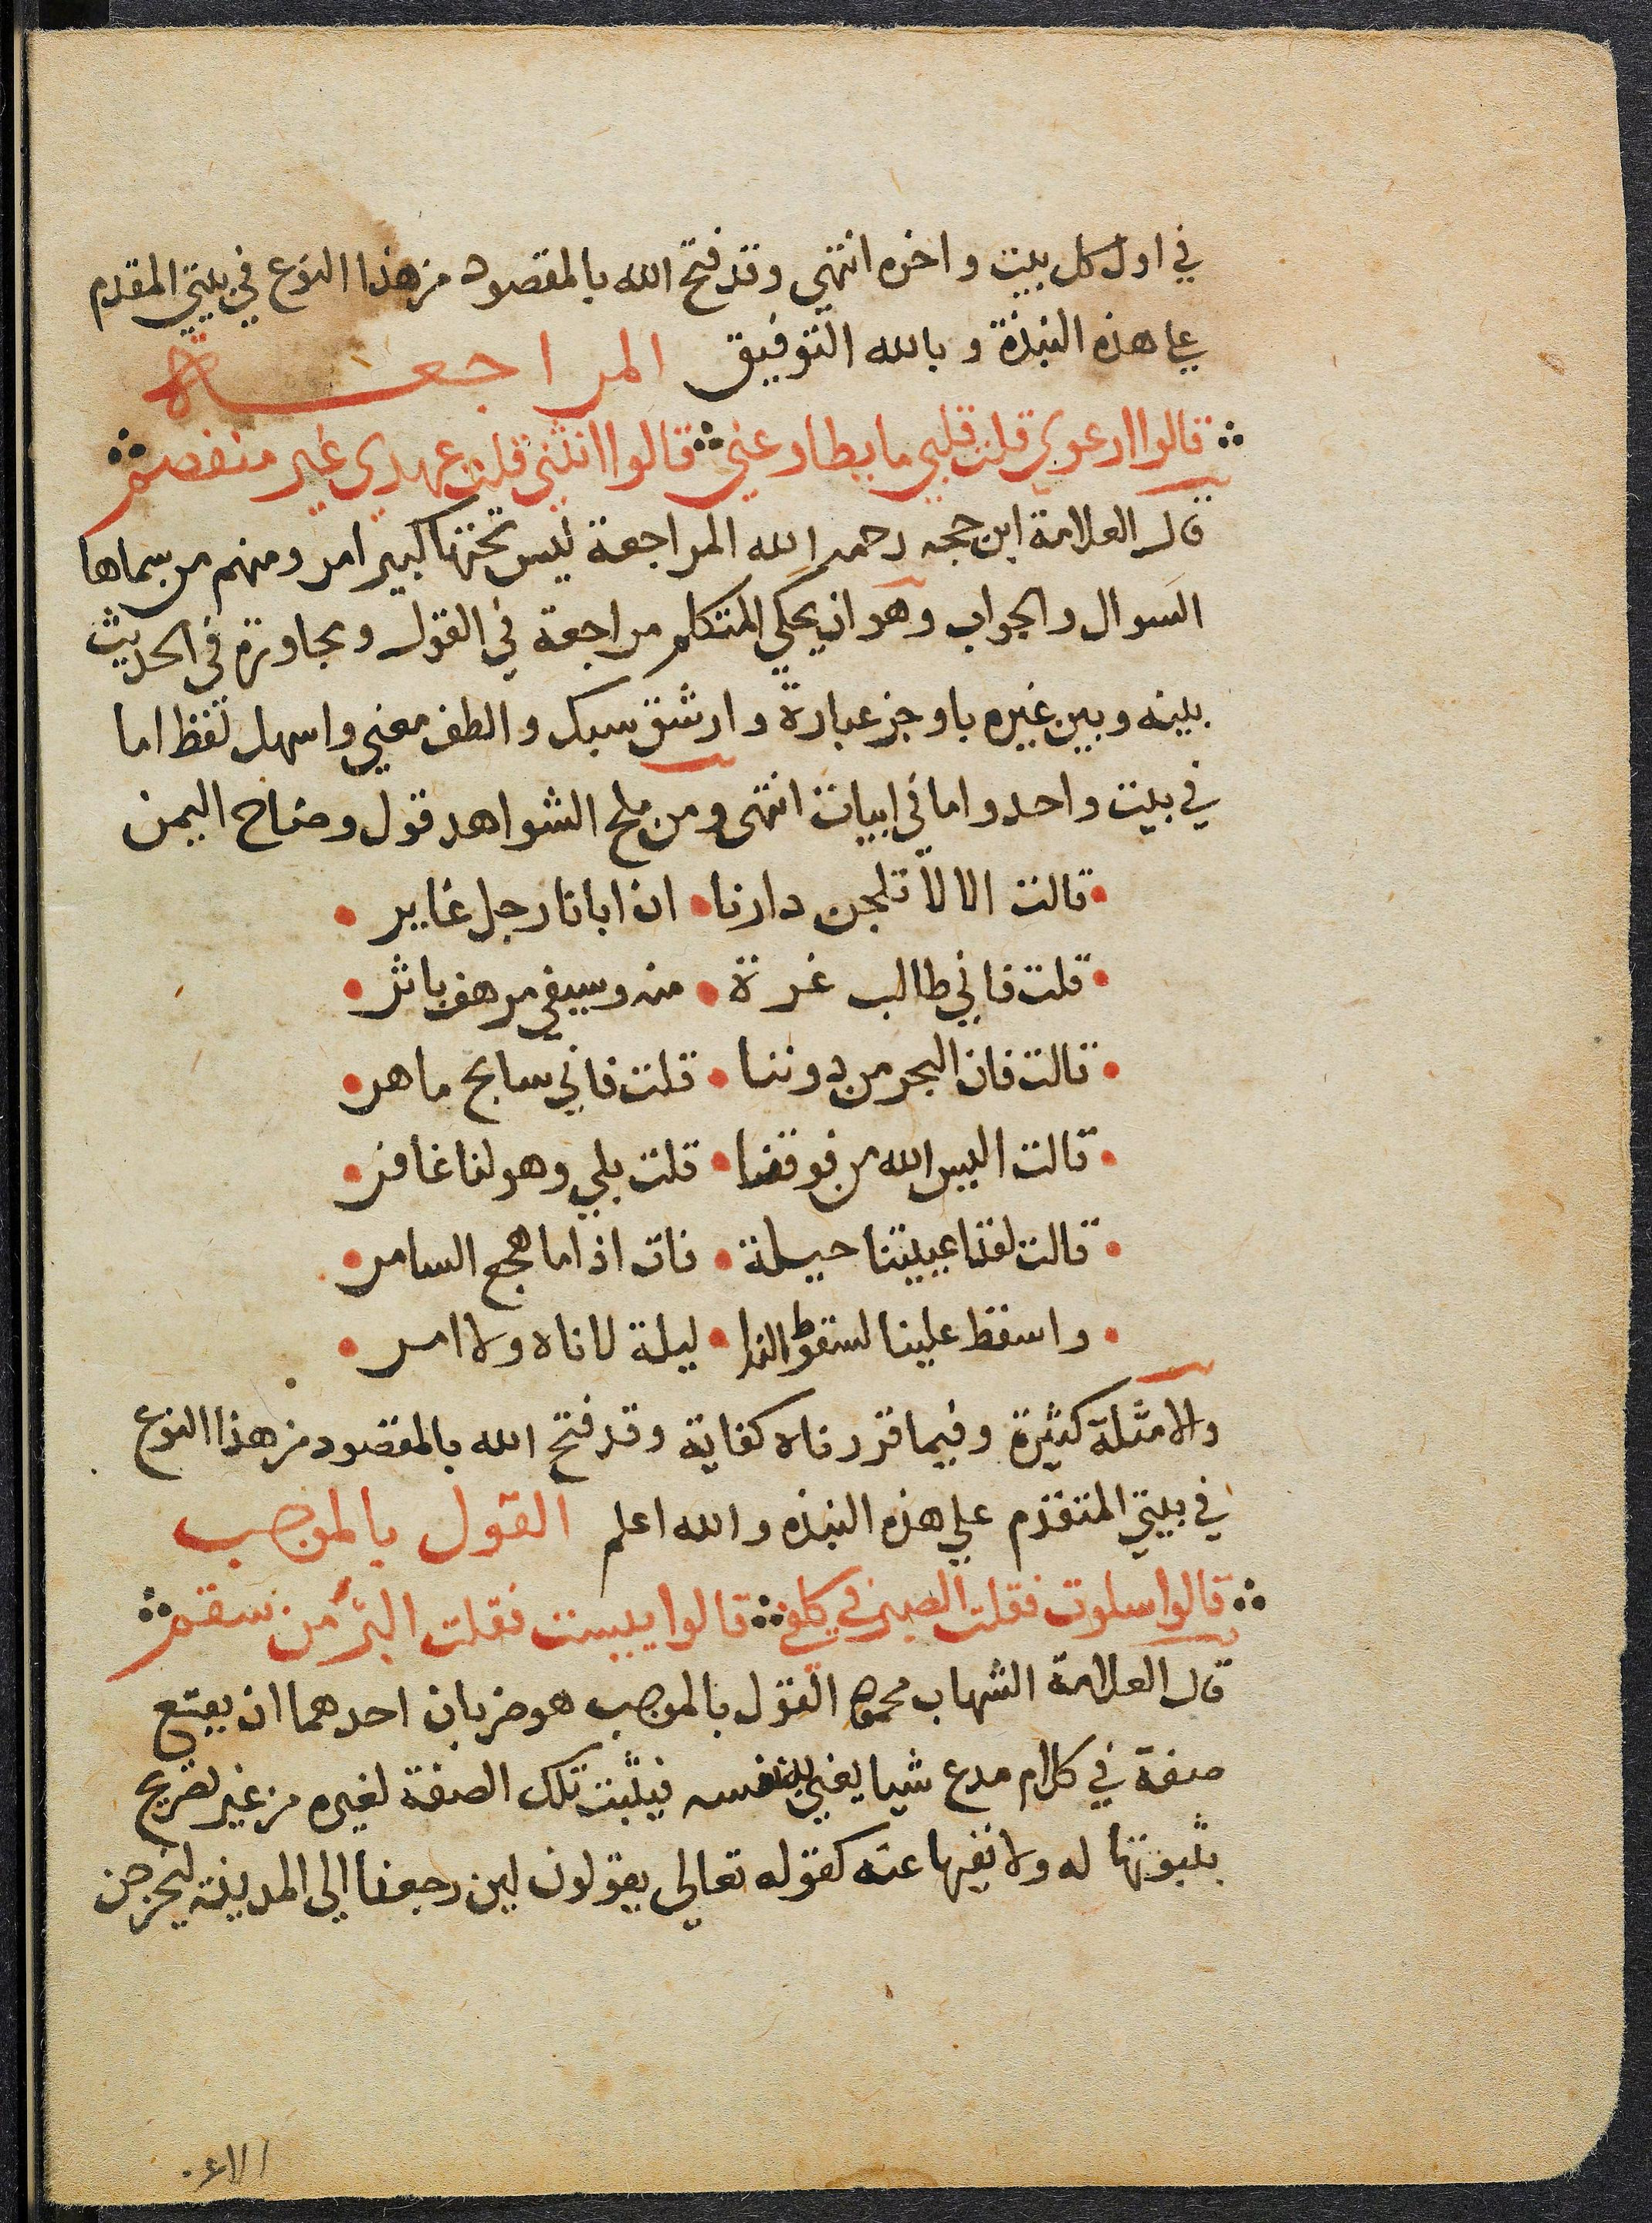 في اول كل بيت واخره انتهي وقد فتح الله بالمقصود من هذا النوع في بيتي المقدم
علي هذه النبذة وبالله التوفيق المراجعــة
قالوا ارعوى قلت قلبي ما يطاوعني قالوا انثني قلت عهدي غير منفصم
قال العلامة ابن حجه رحمه الله المراجعة ليس تحتها كبير امر ومنهم من سماها
السوال والجواب وهو ان يحكي المتكلم مراجعة في القول ومجاوزة في الحديث
بينه وبين غيره باوجز عبارة وارشق سبك والطف معني واسهل لفظ اما
في بيت واحد واما في ابيات انتهى ومن ملح الشواهد قول وضاح اليمن
قالت الا لا تلجن دارنا • ان ابانا رجل غاير •
قلت فاني طالب غرة • منه وسيفي مرهف باتر •
قالت فان البحر من دوننا • قلت فاني سابح ماهر •
قالت اليس الله من فوقنا • قلت بلي وهو لنا غافر •
قالت لقد اعييتنا حيلة • فات اذا ما هجع السامر •
واسقط علينا لسقوط الندا • ليلة لا ناه ولا امر •
والامثلة كثيرة وفيما قررناه كفاية وقد فتح الله بالمقصود من هذا النوع
في بيتي المتقدم علي هذه النبذه والله اعلم القول بالموجب
قالوا سلوت فقلت الصبر في كلفي قالوا يبست فقلت البرء من سقم
قال العلامة الشهاب محمود القول بالموجب هو ضربان احدهما ان يقع
صفة في كلام مدع شيا يعني به نفسه فيثبت تلك الصفة لغيره من غير تصريح
بثبوتها له ولا نفيها عنه كقوله تعالي يقولون لين رجعنا الي المدينه ليخرجن
الاعز